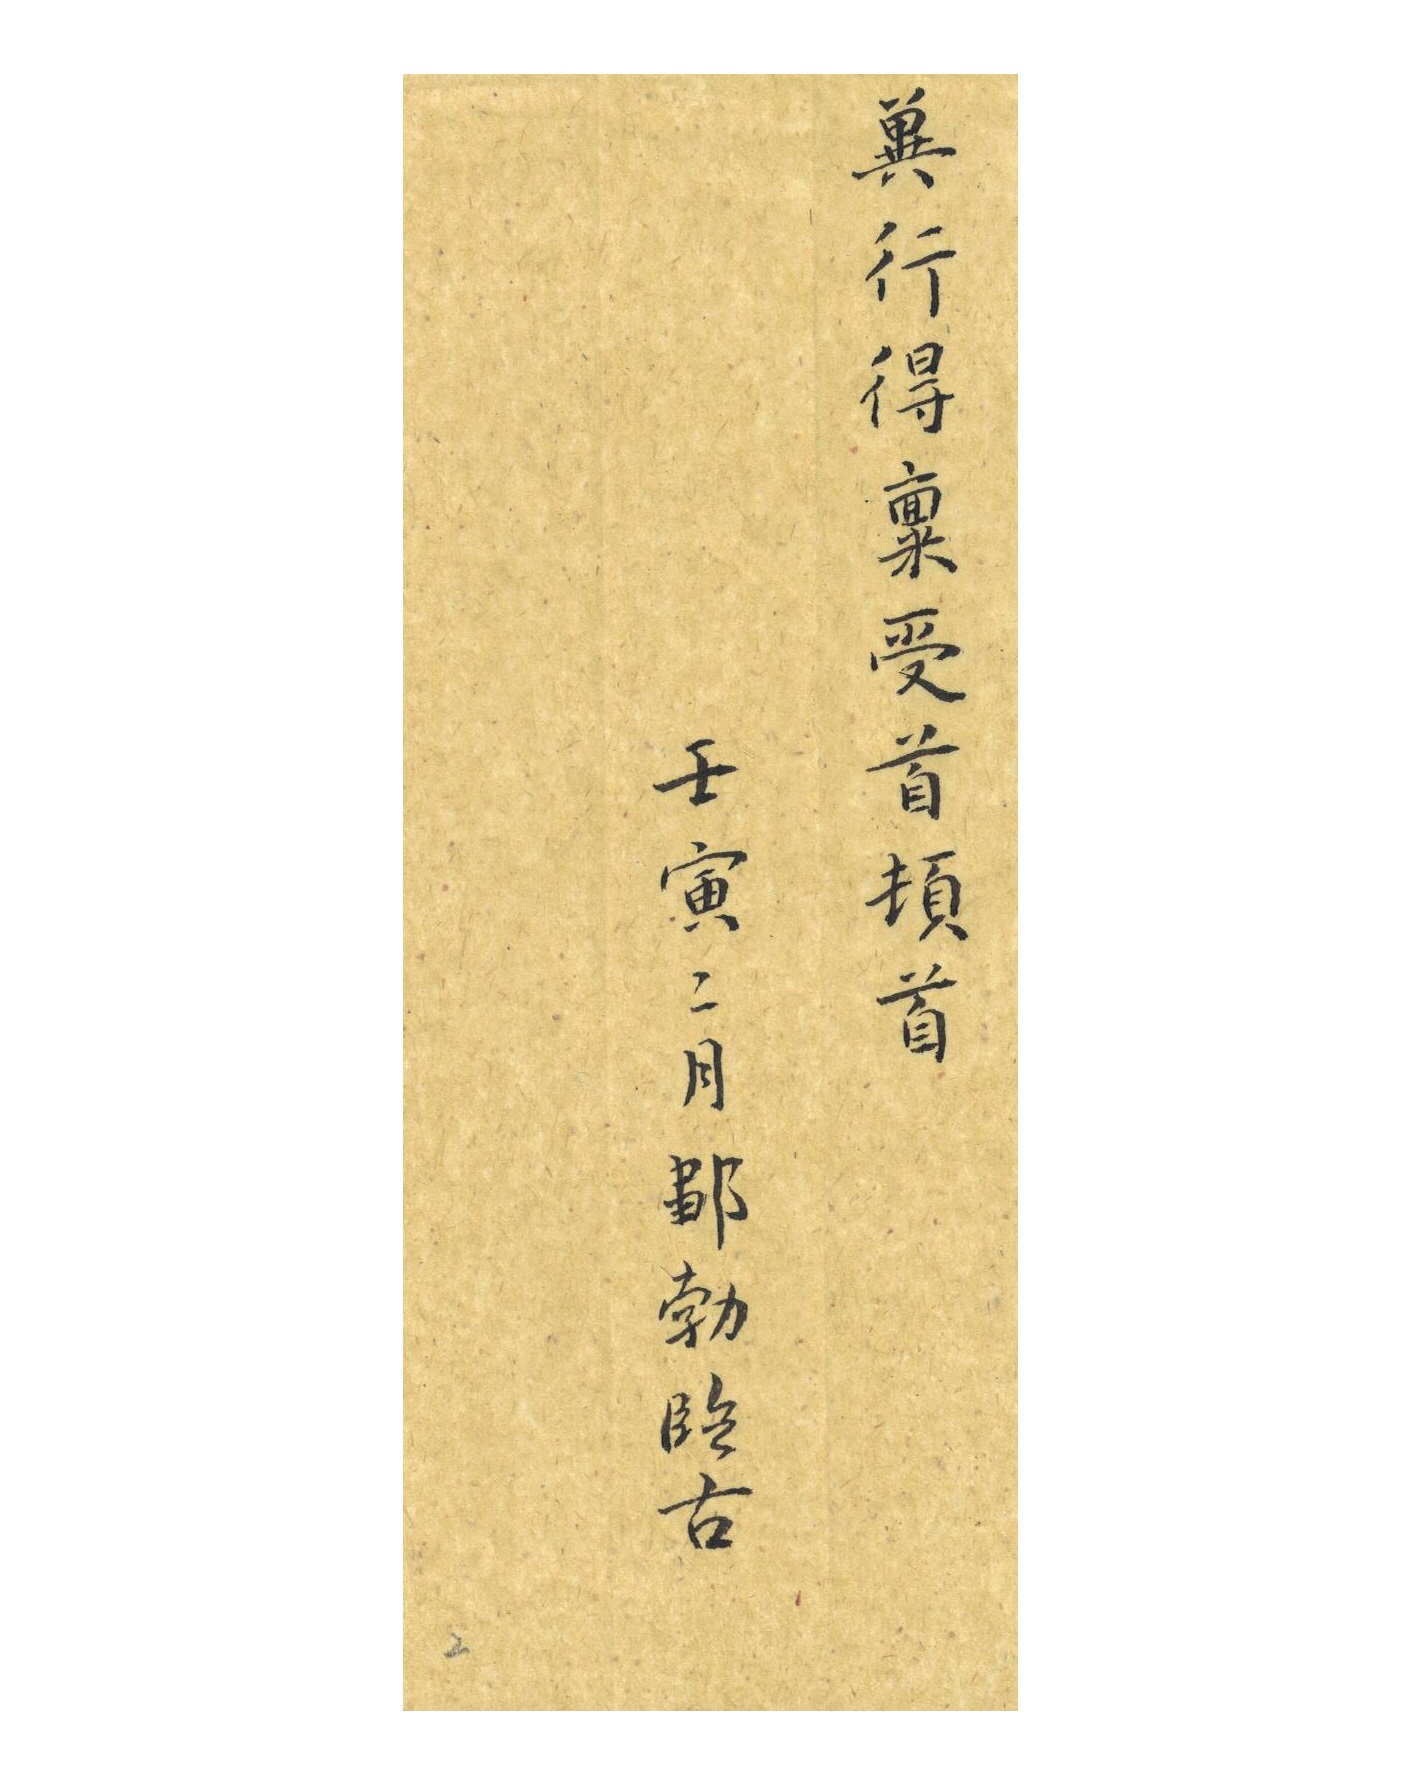 冀行得稟受首頓首
壬寅二月勃臨古
2